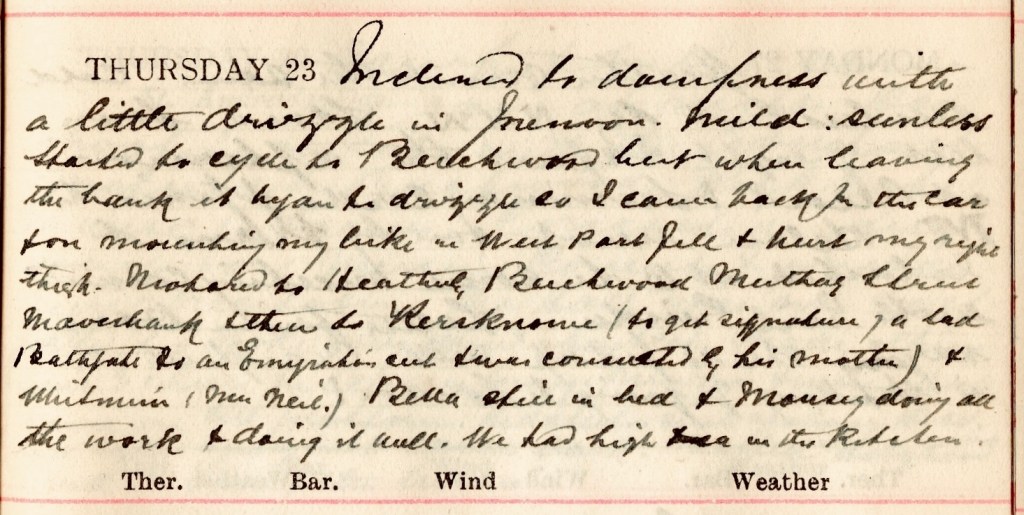 THURSDAY 23 Inclined to dampness with
a little drizzle in forenoon. Mild: sunless
Started to cycle to Beechwood but when leaving
the bank it began to drizzle so I came back for the car
& on mounting my bike in West Port fell & hurt my right
thigh. Motored to Beechwood
Maveshank & then to Kersknowe (to get signature of a lad
Bathgate to an Emigration cert & was consulted by his mother) &
(Mrs Neil.) Bella still in bed & Mousey doing all
the work & doing it well. We had high tea in the Kitchen.
Ther. Bar. Wind Weather